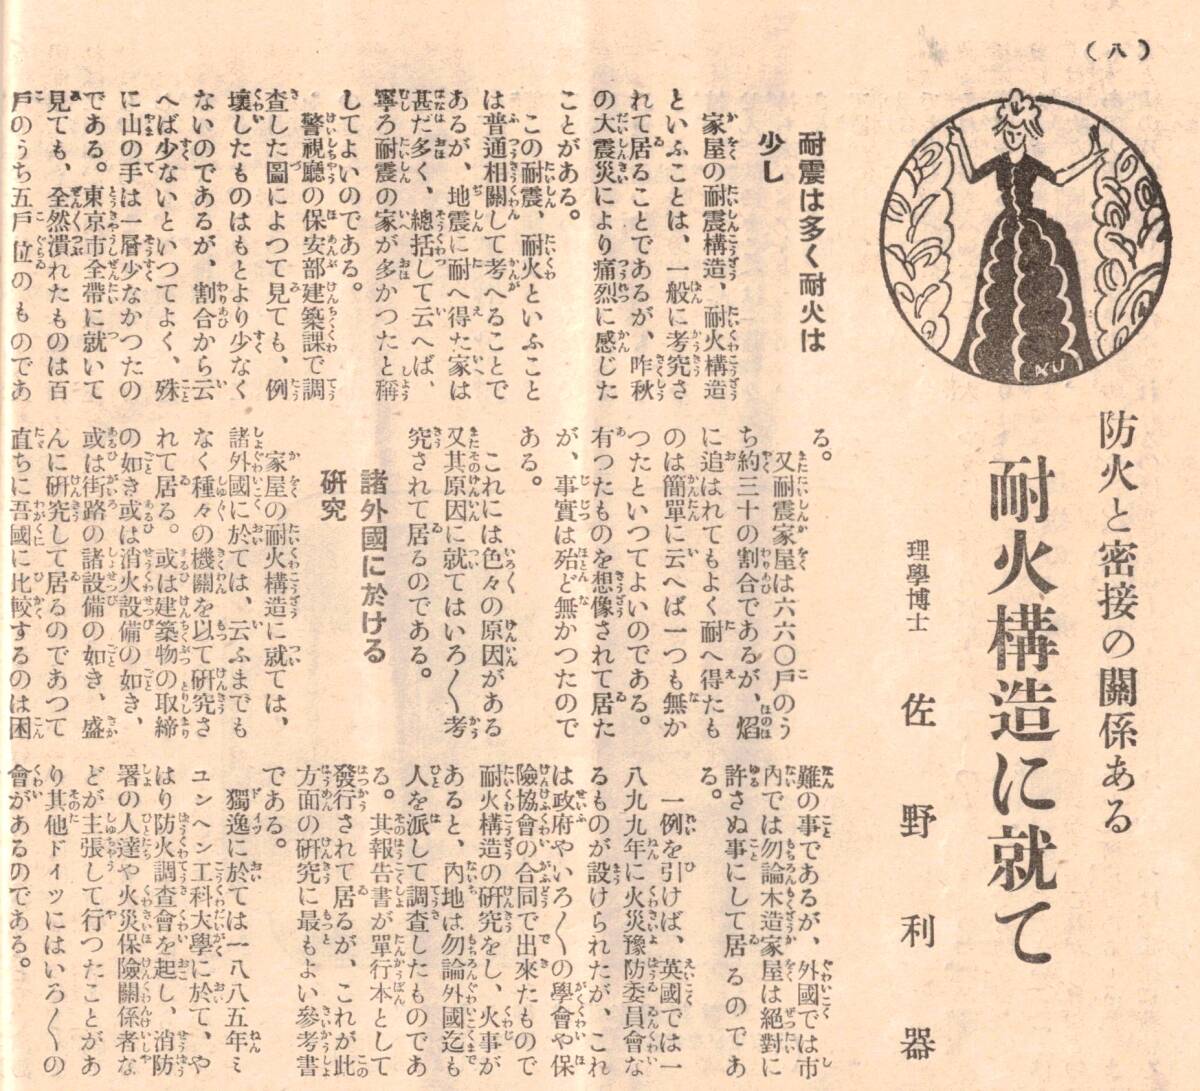 (八)
防火と密接の關係ある
耐火構造に就て
理學博士 佐野利器
耐震は多く耐火は
少し
家屋の耐震構造、耐火構造
といふことは、一般に考究さ
れて居ることであるが、昨秋
の大震災により痛烈に感じた
ことがある。
この耐震、耐火といふこと
は普通相關して考へることで
あるが、地震に耐へ得た家は
甚だ多く、總括して云へば、
寧ろ耐震の家が多かつたと稱
してよいのである。
警視廳の保安部建築課で調
査した圖によつて見ても、例
壞したものはもとより少なく
ないのであるが、割合から云
へば少ないといつてよく、殊
に山の手は一層少なかつたの
である。東京市全帶に就いて
見ても、全然潰れたものは百
戶のうち五戶位のものであ
る。
又耐震家屋は六六〇戶のう
ち約三十の割合であるが、焰
に追はれてもよく耐へ得たも
のは簡單に云へば一つも無か
つたといつてよいのである。
有つたものを想像されて居た
が、事實は殆ど無かつたので
ある。
これには色々の原因がある
又其原因に就てはいろ〱考
究されて居るのである。
諸外國に於ける
硏究
家屋の耐火構造に就ては、
諸外國に於ては、云ふまでも
なく種々の機關を以て硏究さ
れて居る。或は建築物の取締
の如き或は消火設備の如き、
或は街路の諸設備の如き、盛
んに硏究して居るのであつて
直ちに吾國に比較するのは困
難の事であるが、外國では市
內では勿論木造家屋は絕對に
許さぬ事にして居るのであ
る。
一例を引けば、英國では一
八九九年に火災豫防委員會な
るものが設けられたが、これ
は政府やいろ〱の學會や保
險協會の合同で出來たもので
耐火構造の硏究をし、火事が
あると、內地は勿論外國迄も
人を派して調査したものであ
る。其報告書が單行本として
發行されて居るが、これが此
方面の硏究に最もよい參考書
である。
獨逸に於ては一八八五年ミ
ユンヘン工科大學に於て、や
はり防火調査會を起し、消防
署の人達や火災保險關係者な
どが主張して行つたことがあ
り其他ドイツにはいろ〱の
會があるのである。
KU